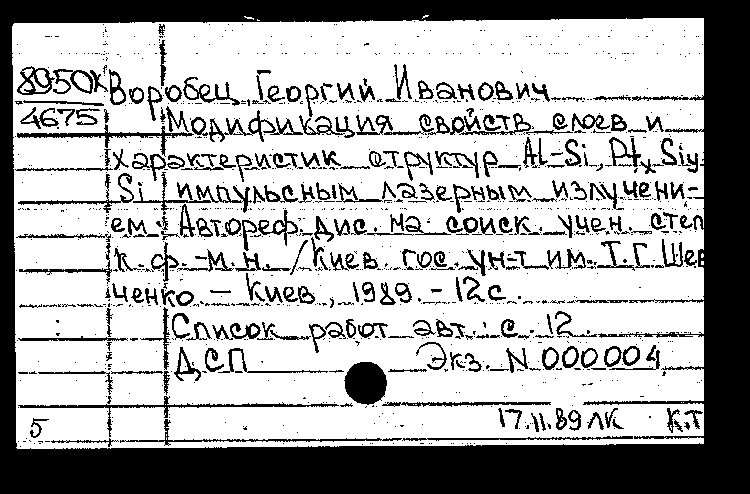 8950к Воробец Георгий Иванович
4675 Модификация свойств слоев и
характеристик структур Al-Si, PtxSiy-
Si импульсным лазерным излучени-
ем: Автореф. дис. на соиск. учен. степ
к. ф.-м.н. / Киев. гос. ун-т им. Т.Г. Шев
ченко. - Киев, 1989. - 12 с.
Список работ авт.: с. 12.
ДСП Экз. N 000004
5 17.11.89 ЛК К.Т